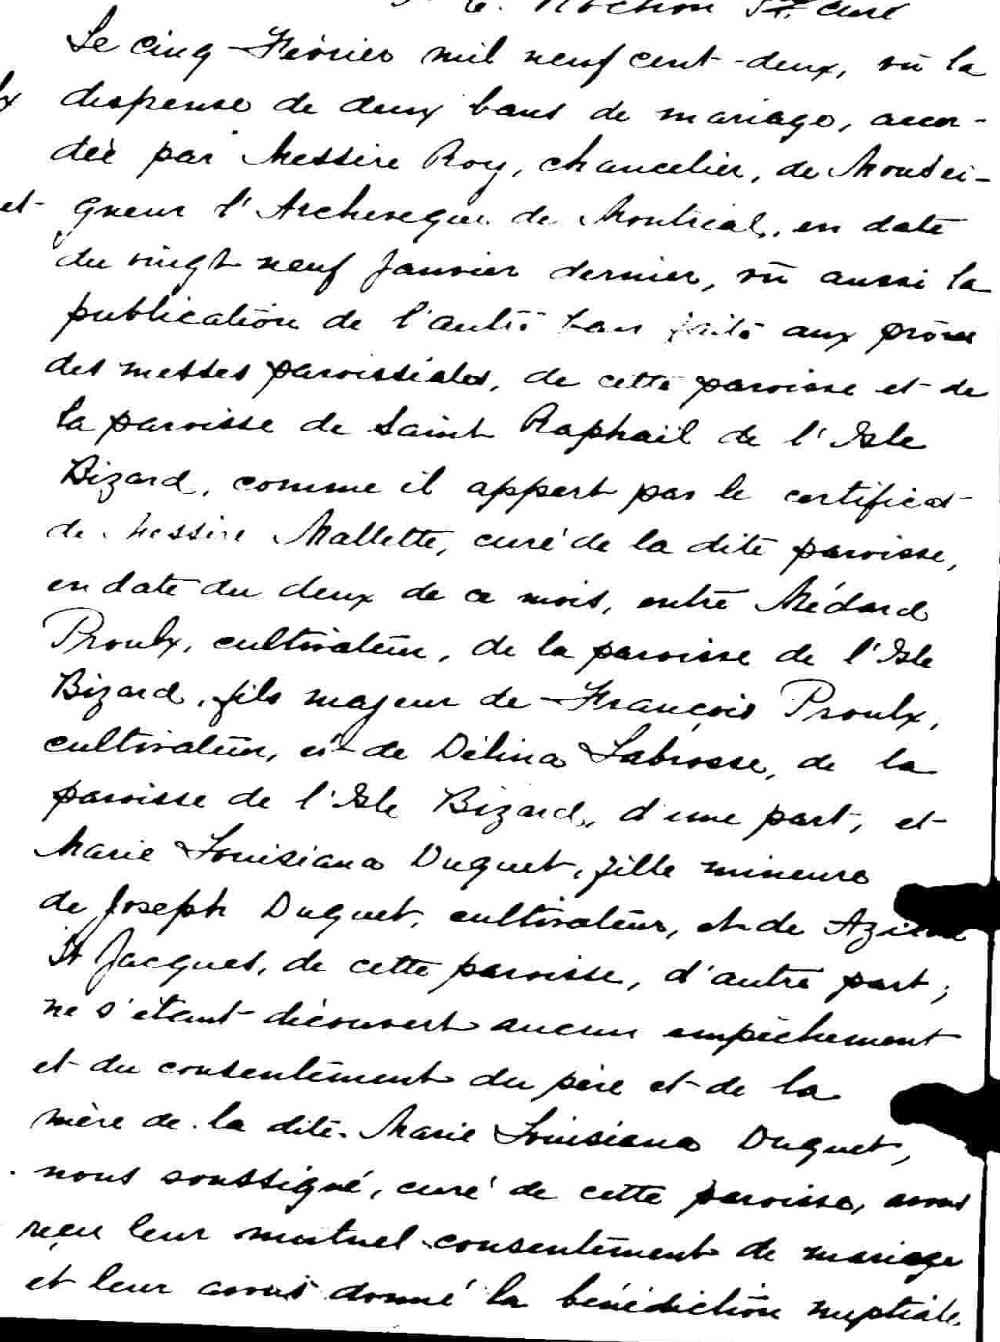 Rochon Ptr. curé
Le cinq Février mil neuf cent-deux, vû la
lx dispense de deux bans de mariage, accor-
dée par Messire Roy, chancelier, de Monsei-
et gneur l'Archevêque de Montréal, en date
du vingt neuf Janvier dernier, vû aussi la
publication de l'autre ban faite aux prônes
des messes paroissiales, de cette paroisse et de
la paroisse de Saint Raphaïl de l'Isle
Bizard, comme il appert par le certificat
de Messire Mallette, curé de la dite paroisse,
en date du deux de ce mois, entre Médard
Proulx, cultivateur, de la paroisse de l'Isle
Bizard, fils majeur de François Proulx,
cultivateur, et de Délina Labrosse, de la
paroisse de l'Isle Bizard, d'une part, et
Marie Louisiana Duquet, fille mineure
de Joseph Duquet, cultivateur, et de
St Jacques, de cette paroisse, d'autre part;
ne s'étant découvert aucun empêchement
et du consentement du père et de la
mère de la dite Marie Louisiana Duquet,
nous soussigné, curé de cette paroisse, avons
reçu leur mutuel consentement de mariage
et leur avons donné la bénédiction nuptiale.